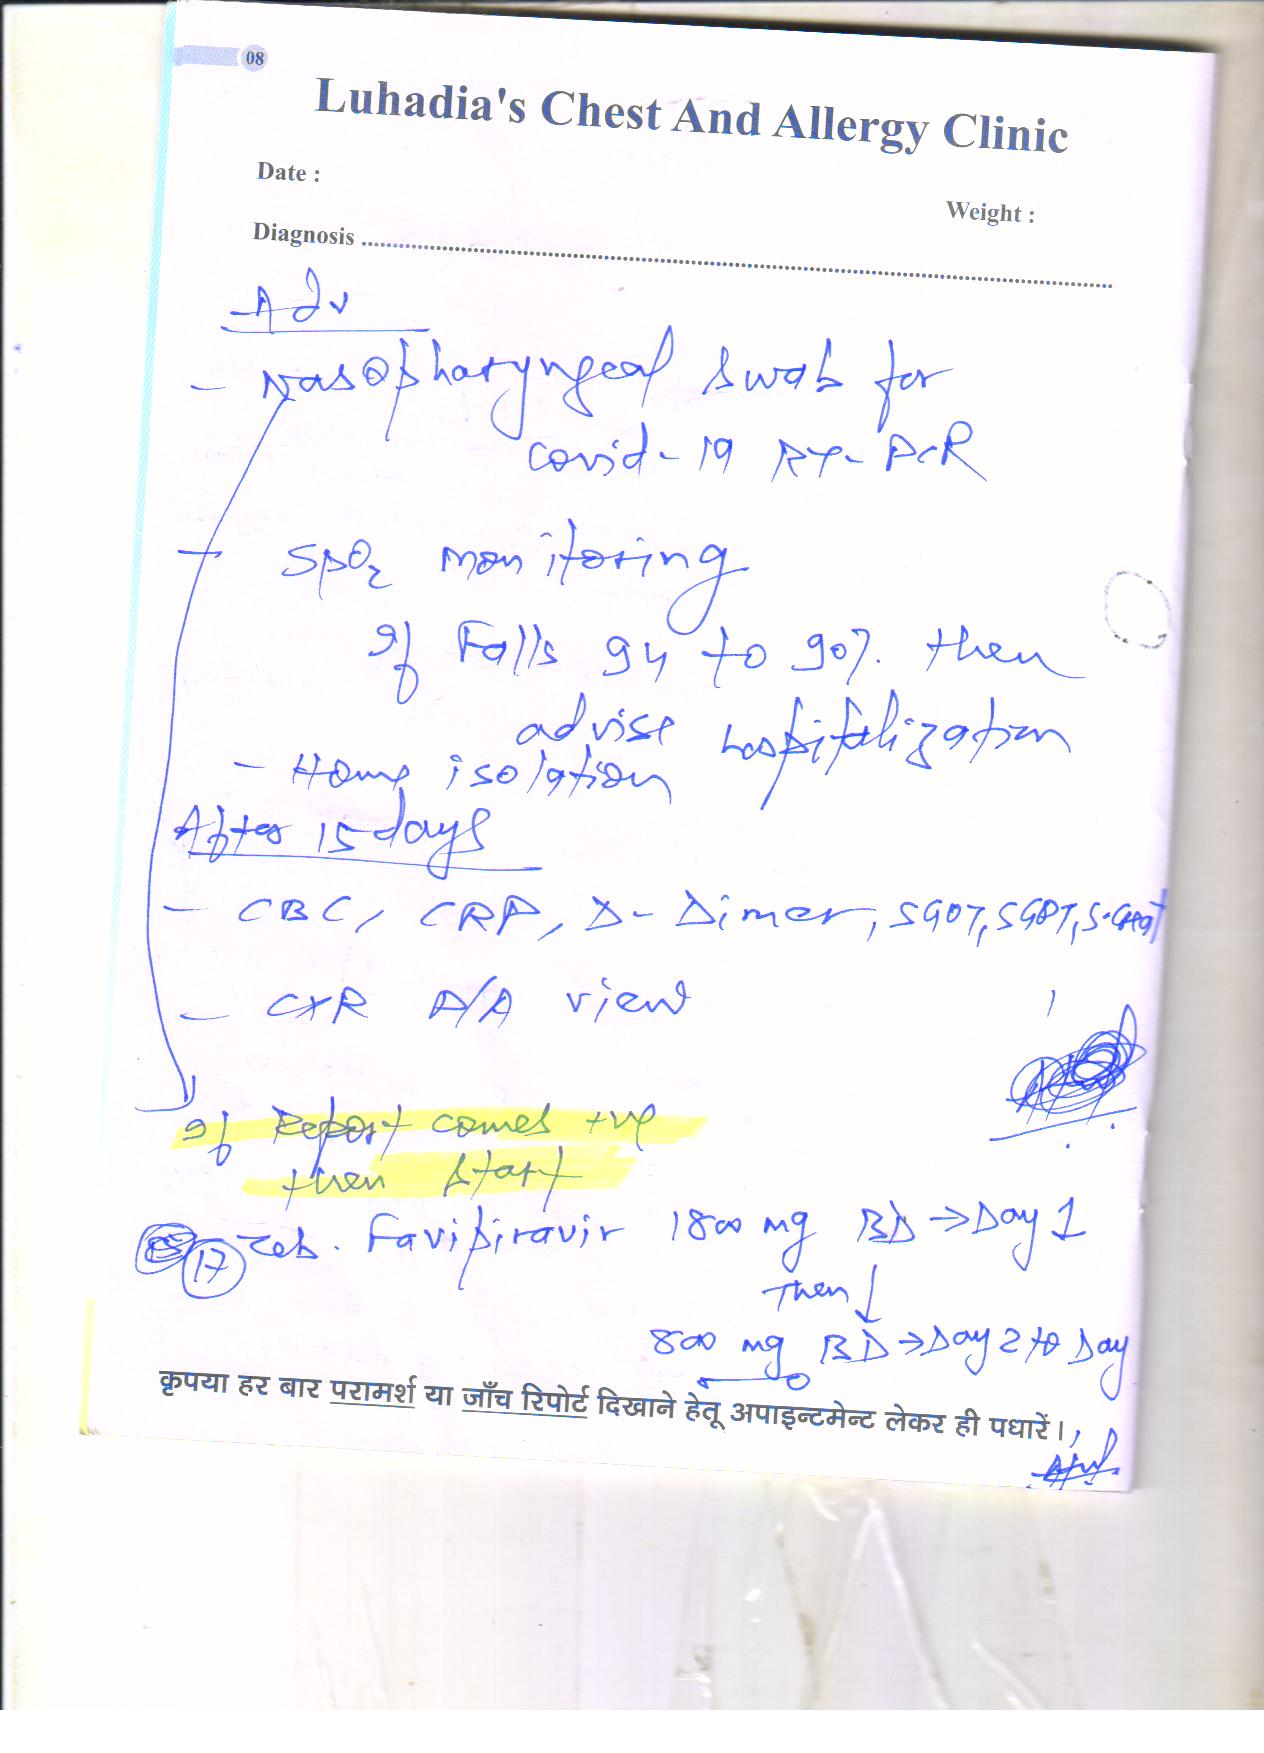 08
Luhadia's Chest And Allergy Clinic
Date :
Weight :
Diagnosis
Adv
- Nasopharyngeal swab for
covid-19 RT-PCR
- SpO2 monitoring
If Falls 94 to 90% then
advise hospitalization
- Home isolation
After 15 days
- CBC, CRP, D-Dimer, SGOT, SGPT, S.Creat
- CXR P/A view
If Report comes +ve
then start
17 Tab. Favipiravir 1800 mg BD → Day 1
Then ↓
800 mg BD → Day 2 to Day
कृपया हर बार परामर्श या जाँच रिपोर्ट दिखाने हेतू अपाइन्टमेन्ट लेकर ही पधारें।